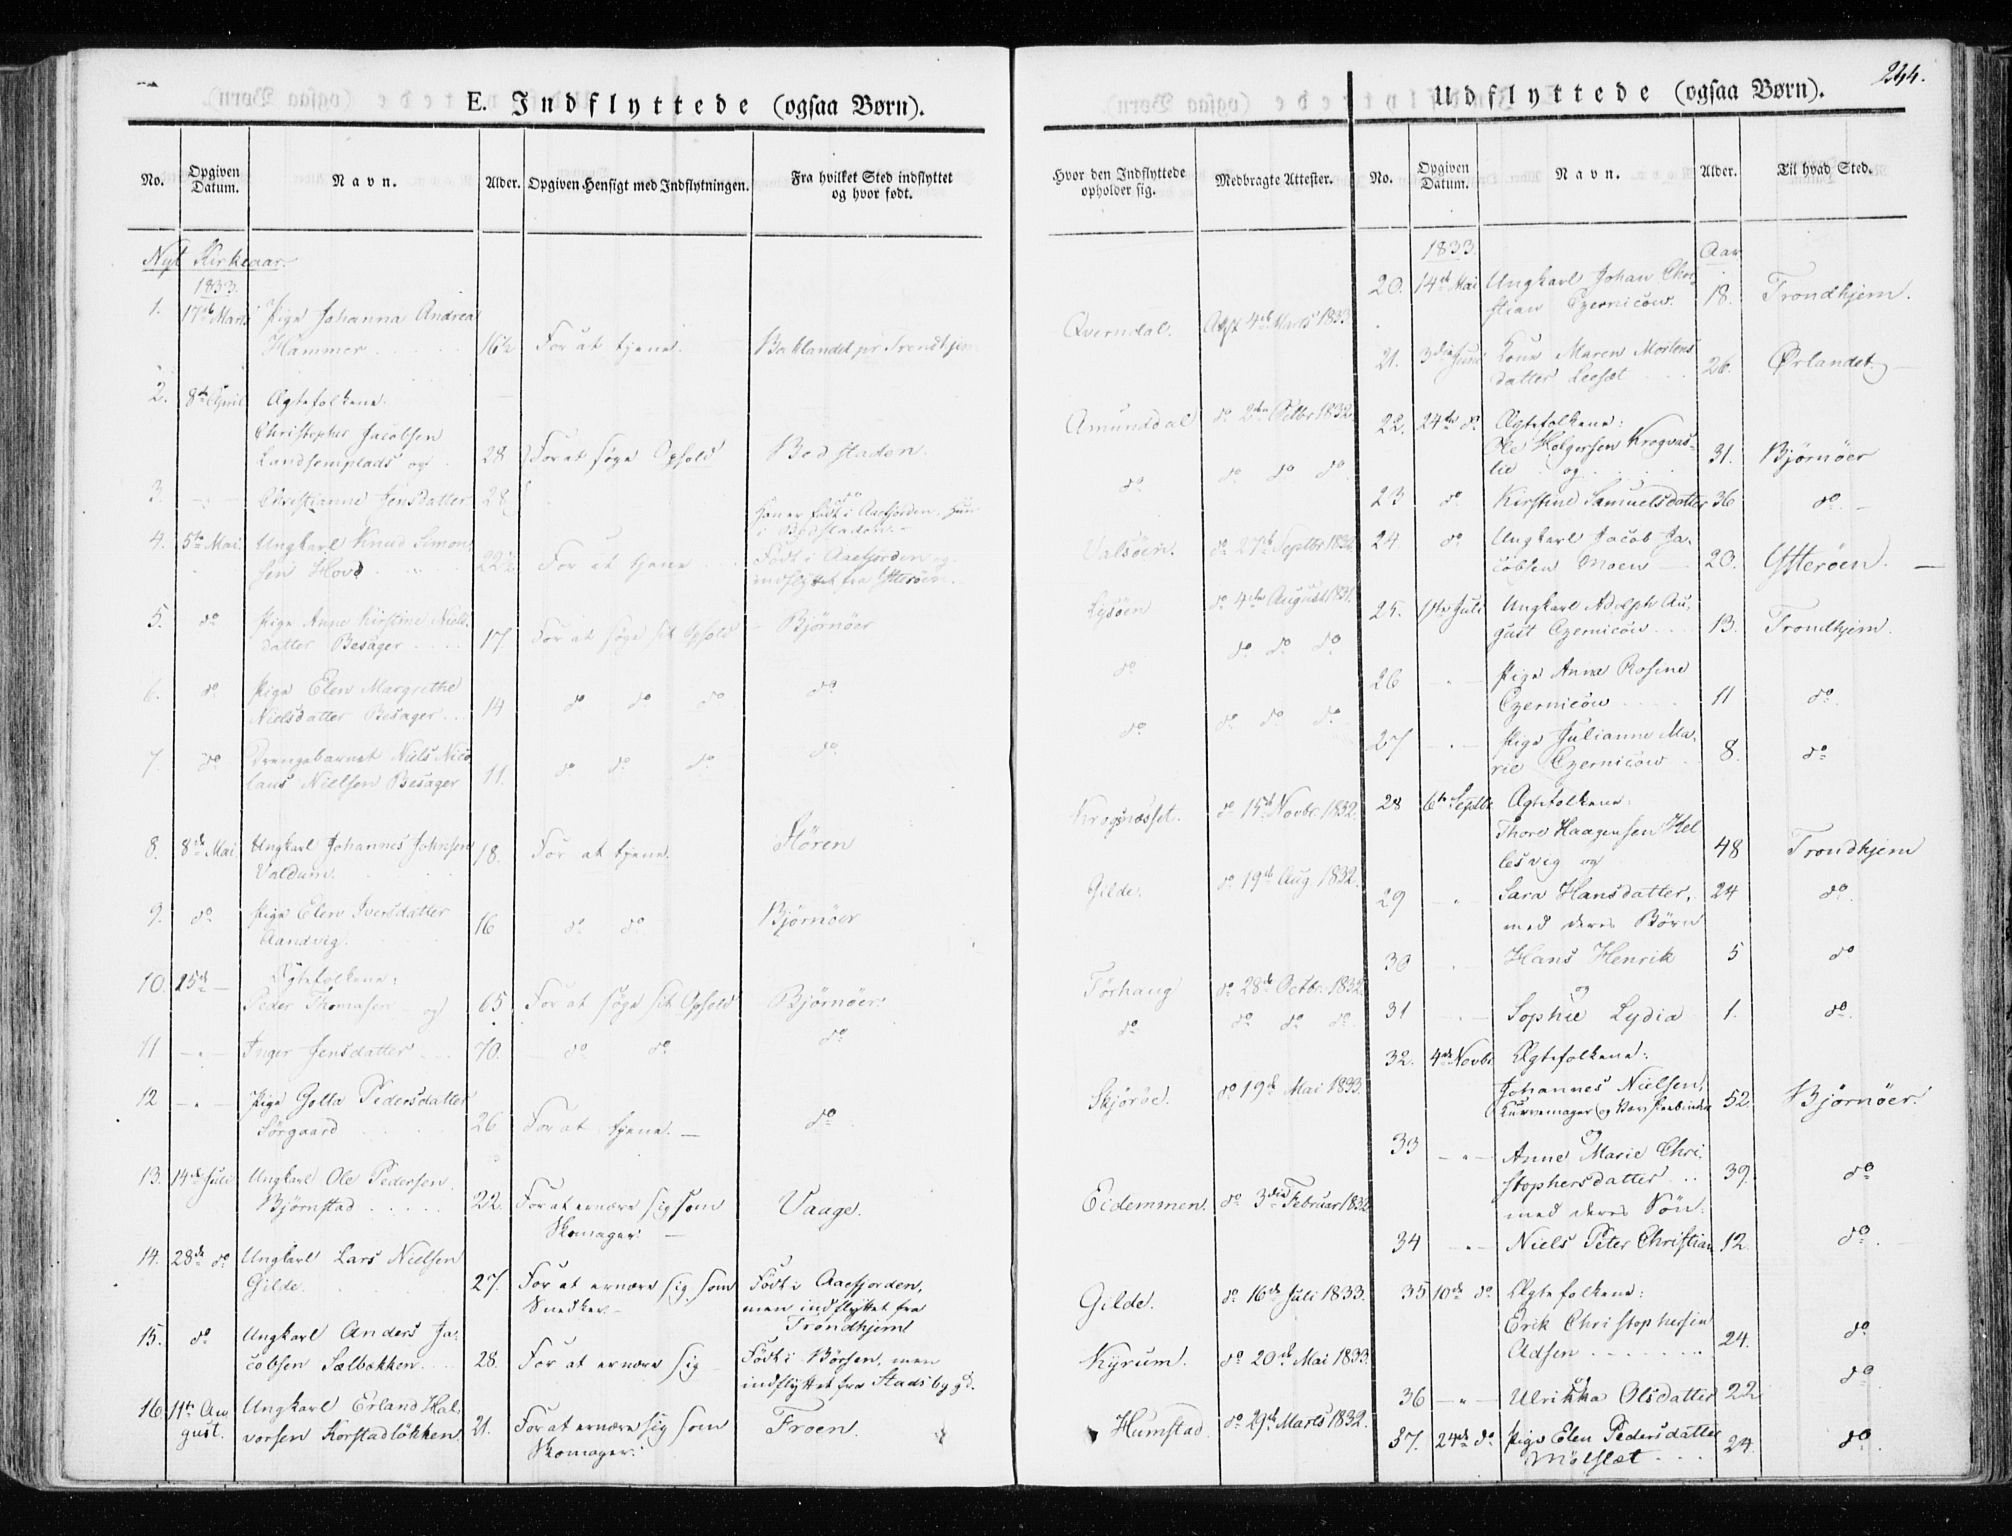 244.
E. Indflyttede (ogsaa Børn).
No. Opgiven Datum. Navn. Alder. Opgiven Hensigt med Indflytningen. Fra hvilket Sted indflyttet og hvor født.
Hvor den Indflyttede opholder sig. Medbragte Attester.
Nyt Kirkeaar.
1833.
1. 17de Marts Pige Johanna Andrea
Hammer 16½ For at tjene. Baklandet pr Trondhjem Qverndal. Attst 4de Marts 1833
2. 8de April Ægtefolkene.
Christopher Jacobsen
Landsemplads og 28 For at søge Ophold Bodstaden. Amundsdal do 2den Octbr 1832
3. - " - Christianne Jensdatter 28 do do do do
Han er født i Aaefjorden. Hun
i Bodstaden.
4. 5te Mai. Ungkarl Knud Simon-
sen Hovd 22½ For at tjene Født i Aaefjorden og
indflyttet fra Ytterøen. Valsöen. do 27de Septbr 1832
5. do Pige Anne Kirstine Niels-
datter Besager 17 For at søge sit Ophold Bjørnöer Lysöen do 4de August 1831.
6. do Pige Elen Margrethe
Nielsdatter Besager 14 do do do do do do do do
7. do Drengebarnet Niels Nico-
laus Nielsen Besager 11. do do do do do do do do
8. 8de Mai. Ungkarl Johannes Johnsen
Valdum. 18. For at tjene. Stören Krogsnæsset. do 15de Novbr 1832.
9. do Pige Elen Iversdatter
Aandvig. 16 do do Bjørnöer Gilde. do 19de Aug. 1832.
10. 15de - Ægtefolkene:
Peder Thomasen - og 65. For at søge sit Ophold Bjørnöer. Førhaug do 28de Octbr 1832.
11 - " - Inger Jensdatter 70. do do do do do do do
12 - " - Pige Golla Pedersdatter
Sörgaard 26 For at tjene. do Skjöröe. do 19de Mai 1833.
13. 14de Juli Ungkarl Ole Pedersen
Bjørnstad 22. For at ernære sig som
Skomager. Vaage. Eidemmen. do 3die Februar 1832
14. 28de do Ungkarl Lars Nielsen
Gilde. 27. For at ernære sig som
Snedker. Født i Aaefjorden,
men indflyttet fra
Trondhjem Gilde. do 16de Juli 1833.
15. do Ungkarl Anders Ja-
cobsen Sælbakken. 28. For at ernære sig Født i Börsen, men
indflyttet fra Stadsbygd. Nyrum. do 20de Mai 1833.
16. 11te Au-
gust. Ungkarl Erland Hal-
vorsen Korstadlökken. 21. For at ernære sig som
Skomager. Froen. Humstad. do 29de Marts 1832.
Udflyttede (ogsaa Børn).
No. Opgiven Datum. Navn. Alder. Til hvad Sted.
1833. Aar
20. 14de Mai Ungkarl Johan Chri-
stian Czernicow. 18. Trondhjem.
21. 3die Juni Kone Maren Mortens
datter Leesæt 26. Ørlandet
22. 24de do Ægtefolkene:
Ole Holgersen Krognæs-
lie og 31. Bjørnöer
23 do Kirstine Samuelsdatter 36 do
24. do Ungkarl Jacob Ja-
cobsen Moen 20. Ytterøen.
25. 1ste Juli Ungkarl Adolph Au-
gust Czernicow 13. Trondhjem.
26 - " - Pige Anne Rosine
Czernicow 11 do
27 - " - Pige Julianne Ma-
rie Czernicow 8. do
28 6te Septbr Ægtefolkene:
Thore Haagensen Hel-
lesvig og 48 Trondhjem
29 - " - Sara Hansdatter, 24 do
med deres Børn
30 - " - Hans Henrik 5 do
og
31 - " - Sophie Lydia 1. do
32. 4de Novbr Ægtefolkene:
Johannes Nielsen,
Kurvemager og 52. Bjørnöer.
33 - " - og
Anne Marie Chri-
stophersdatter 39. do
med deres Søn:
34 - " - Niels Peter Christian 12. do
35 10de do Ægtefolkene:
Erik Christophersen
Adsen 24. do
36 - " - og
Ulrikka Olsdatter 22 do
37. 24de do Pige Elen Pedersdatter
Mölslet 24. do